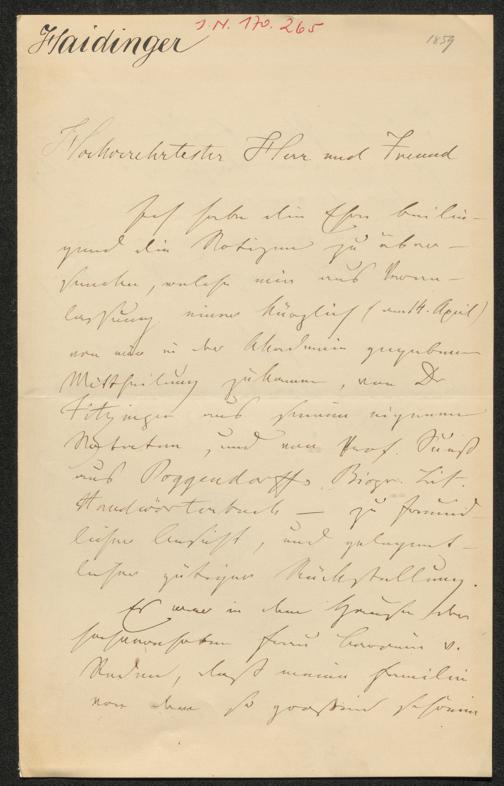 Haidinger
J.N. 170.265
1859
Hochverehrtester Herr und Freund
Ich habe die Ehre beilie-
gend die Notizen zu über-
senden, welche mir aus Veran-
lassung einer kürzlich (am 14. April)
von mir in der Akademie gegebenen
Mittheilung zukamen, von Dr
Fitzinger aus seinen eigenen
Notaten, und von Prof. Sueß
aus Poggendorffs Biogr. Lit.
Handwörterbuch — zu freund-
licher Ansicht, und gelegent-
licher gütiger Rückstellung.
Es war in dem Hause der
Frau Baronin v.
Reden, daß meine Familie
von dem so